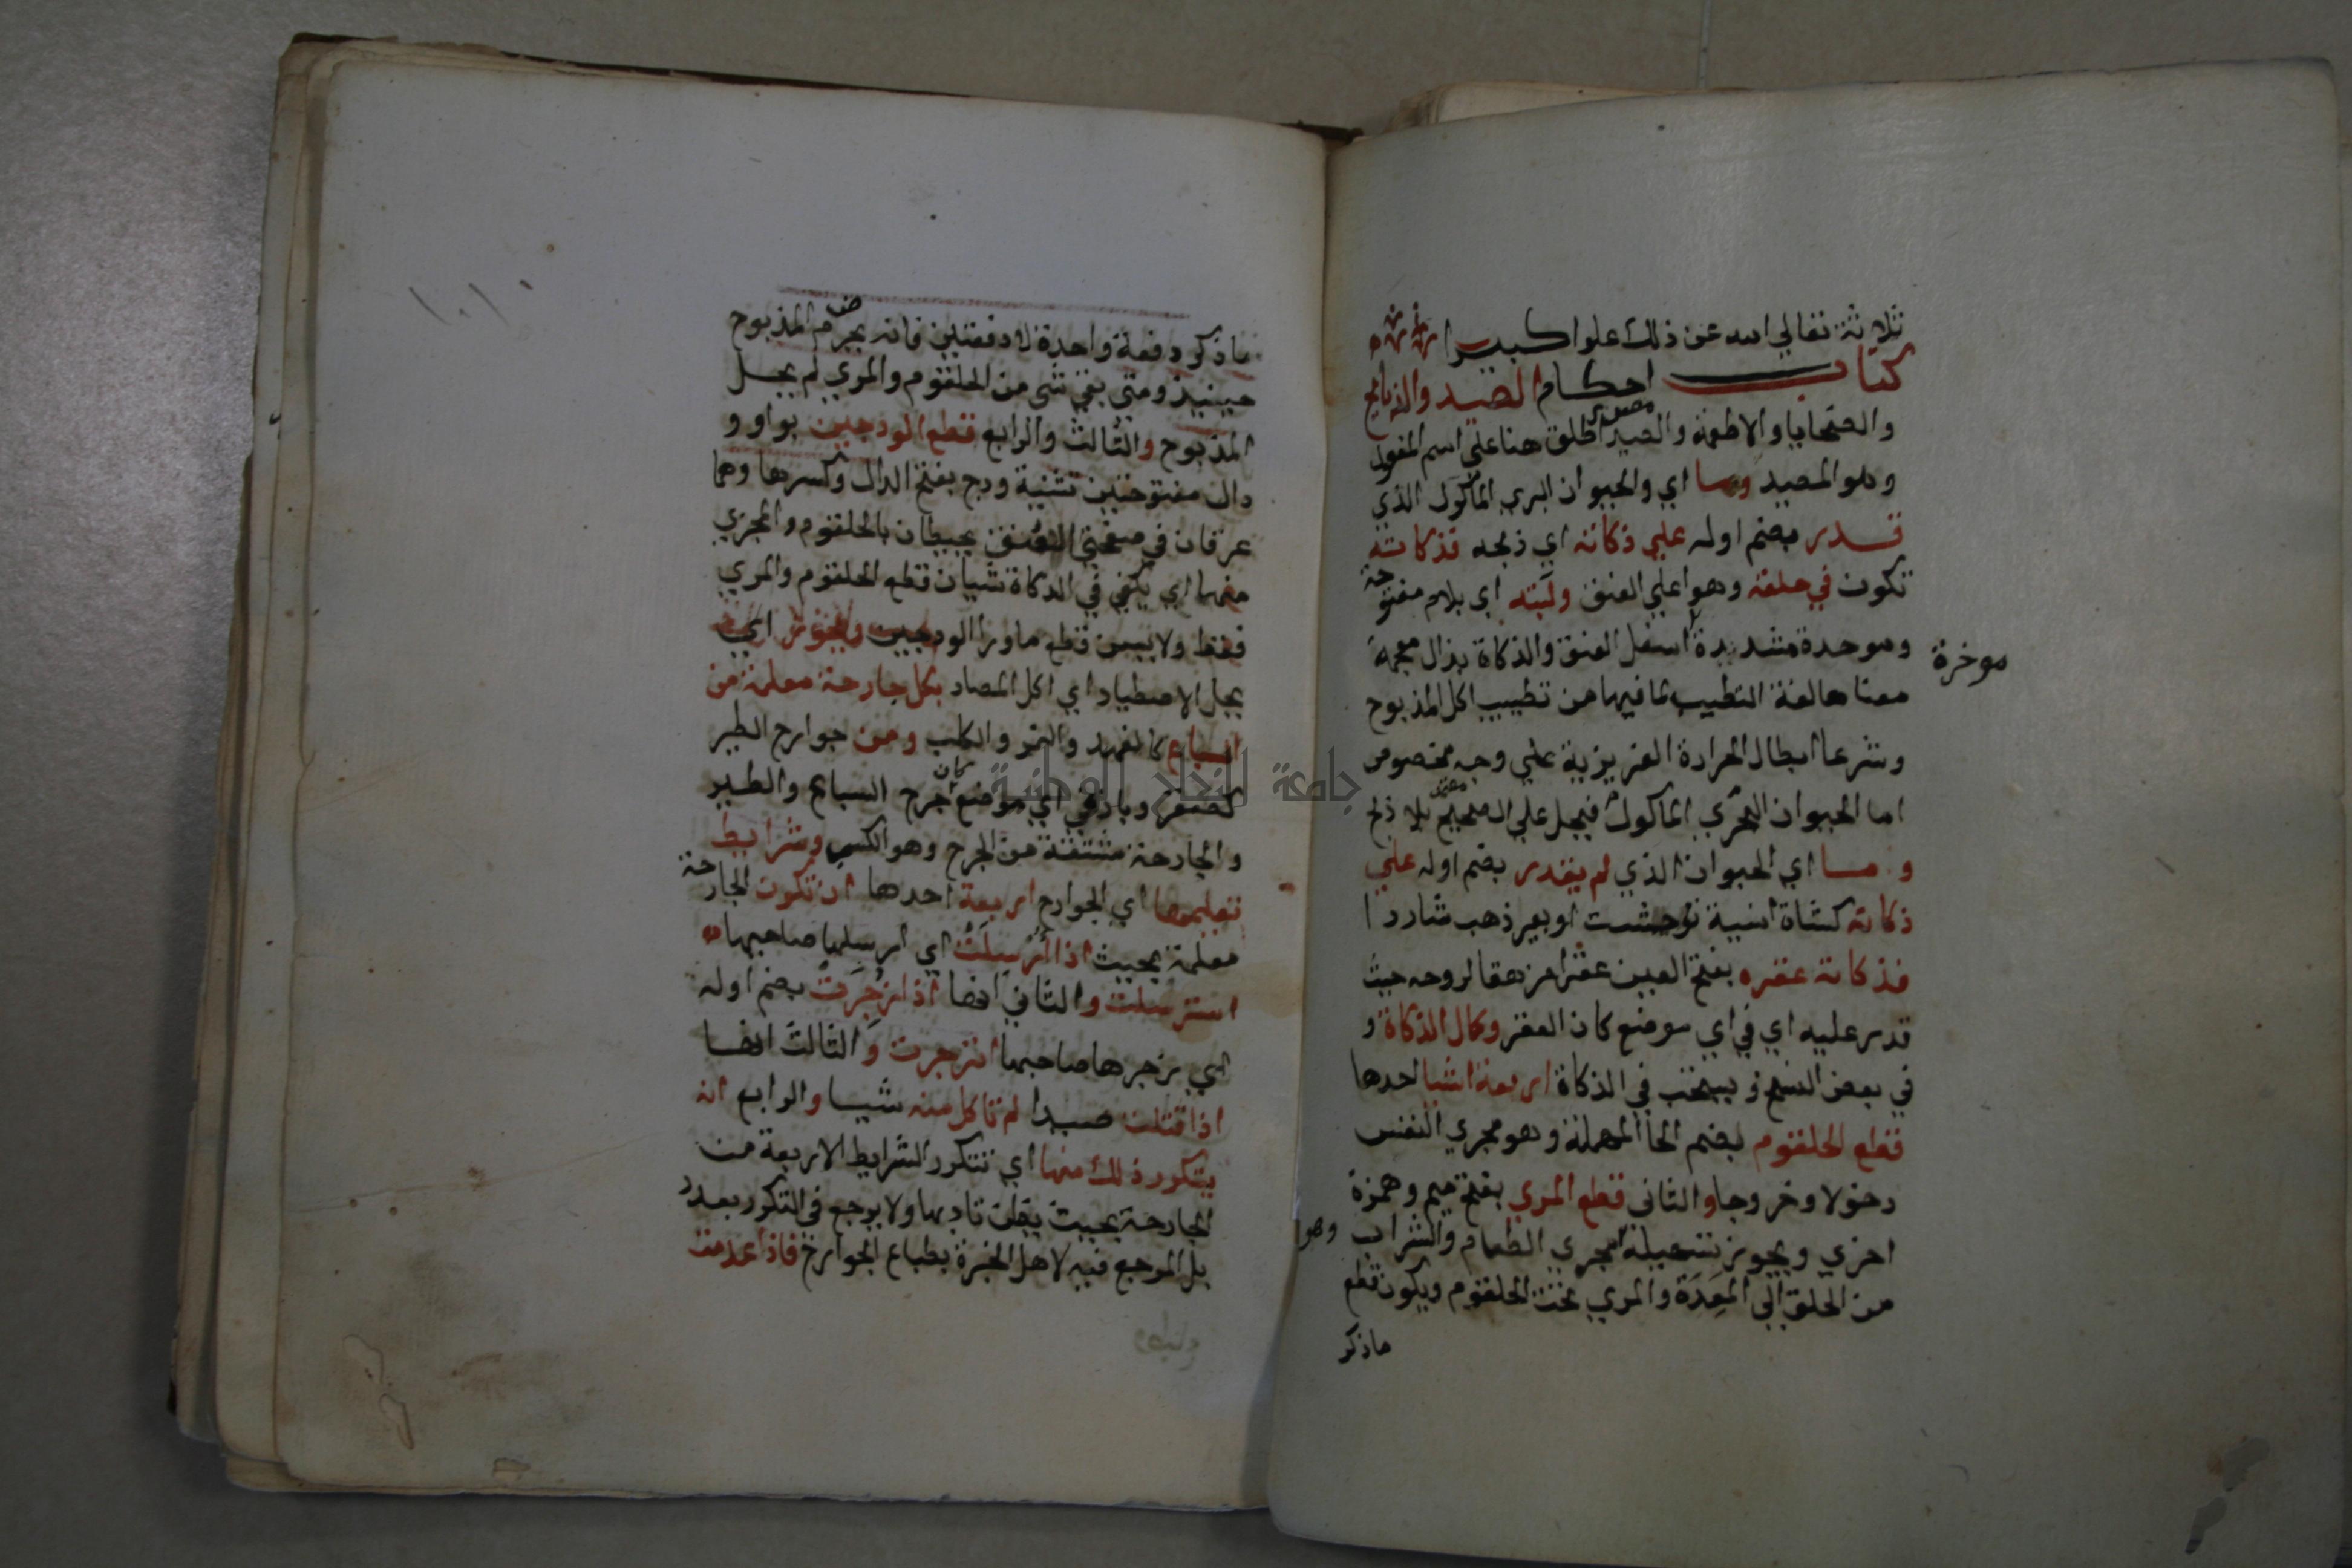 ثلاثة تعالي الله عن ذلك علوا كبيرا
كتاب احكام الصيد والذبايح
والضحايا والاطعمة والصيد مصدر اطلق هنا علي اسم المفعول
وهو المصيد وما اي والحيوان البري الماكول الذي
قدر بضم اوله علي ذكاته اي ذبحه فذكاته
تكون في حلقه وهو اعلي العنق ولبته اي بلام مفتوحة
وموحدة مشددة اسفل العنق والذكاة بذال معجمة
موخرة
معناها لغة التطيب لما فيها من تطييب اكل المذبوح
وشرعا ابطال الحرارة الغريزية علي وجه مخصوص
اما الحيوان البحري الماكول فيحل علي الصحيح بلا ذبح
وما اي الحيوان الذي لم يقدر بضم اوله علي
ذكاته كشاة انسية توحشت او بعير ذهب شاردا
فذكاته عقره بفتح العين عقرا مزهقا لروحه حيث
قدر عليه اي في اي موضع كان العقر وكمال الذكاة و
في بعض النسخ ويستحب في الذكاة اربعة اشيا احدها
قطع الحلقوم بضم الحا المهملة وهو مجري النفس
دخولا وخروجا والثاني قطع المري بفتح ميم وهمزة
اخري ويجوز تسهيله مجري الطعام والشراب وهو
من الحلق الي المعدة والمري تحت الحلقوم ويكون قطع
ماذكر
ما ذكر دفعة واحدة لا دفعتين فانه يحرم المذبوح
حينيذ ومتي بقي شي من الحلقوم والمري لم يحل
المذبوح والثالث والرابع قطع الودجين بواو و
دال مفتوحتين تثنية ودج بفتح الدال وكسرها وهما
عرقان في صفحتي العنق يحيطان بالحلقوم والمجزي
منها اي يكفي في الذكاة شيان قطع الحلقوم والمري
فقط ولا يسن قطع ماورا الودجين ويجوز اي
يحل الاصطياد اي اكل المصاد بكل جارحة معلمة من
السباع كالفهد والنمر والكلب ومن جوارح الطير
كصقر وباز في اي موضع كان جرح السباع والطير
والجارحة مشتقة من الجرح وهو الكسب وشرايط
تعليمها اي الجوارح اربعة احدها ان تكون الجارحة
معلمة بحيث اذا ارسلت اي ارسلها صاحبها
استرسلت والثاني انها اذا زجرت بضم اوله
اي زجرها صاحبها انزجرت والثالث انها
اذا قتلت صيدا لم تاكل منه شييا والرابع انه
يتكرر ذلك منها اي تتكرر الشرايط الاربعة من
الجارحة بحيث يظن تادبها ولا يرجع في التكرر بعدد
بل المرجع فيه لاهل الخبرة بطباع الجوارح فاذا عدمت
جامعة النجاح الوطنية